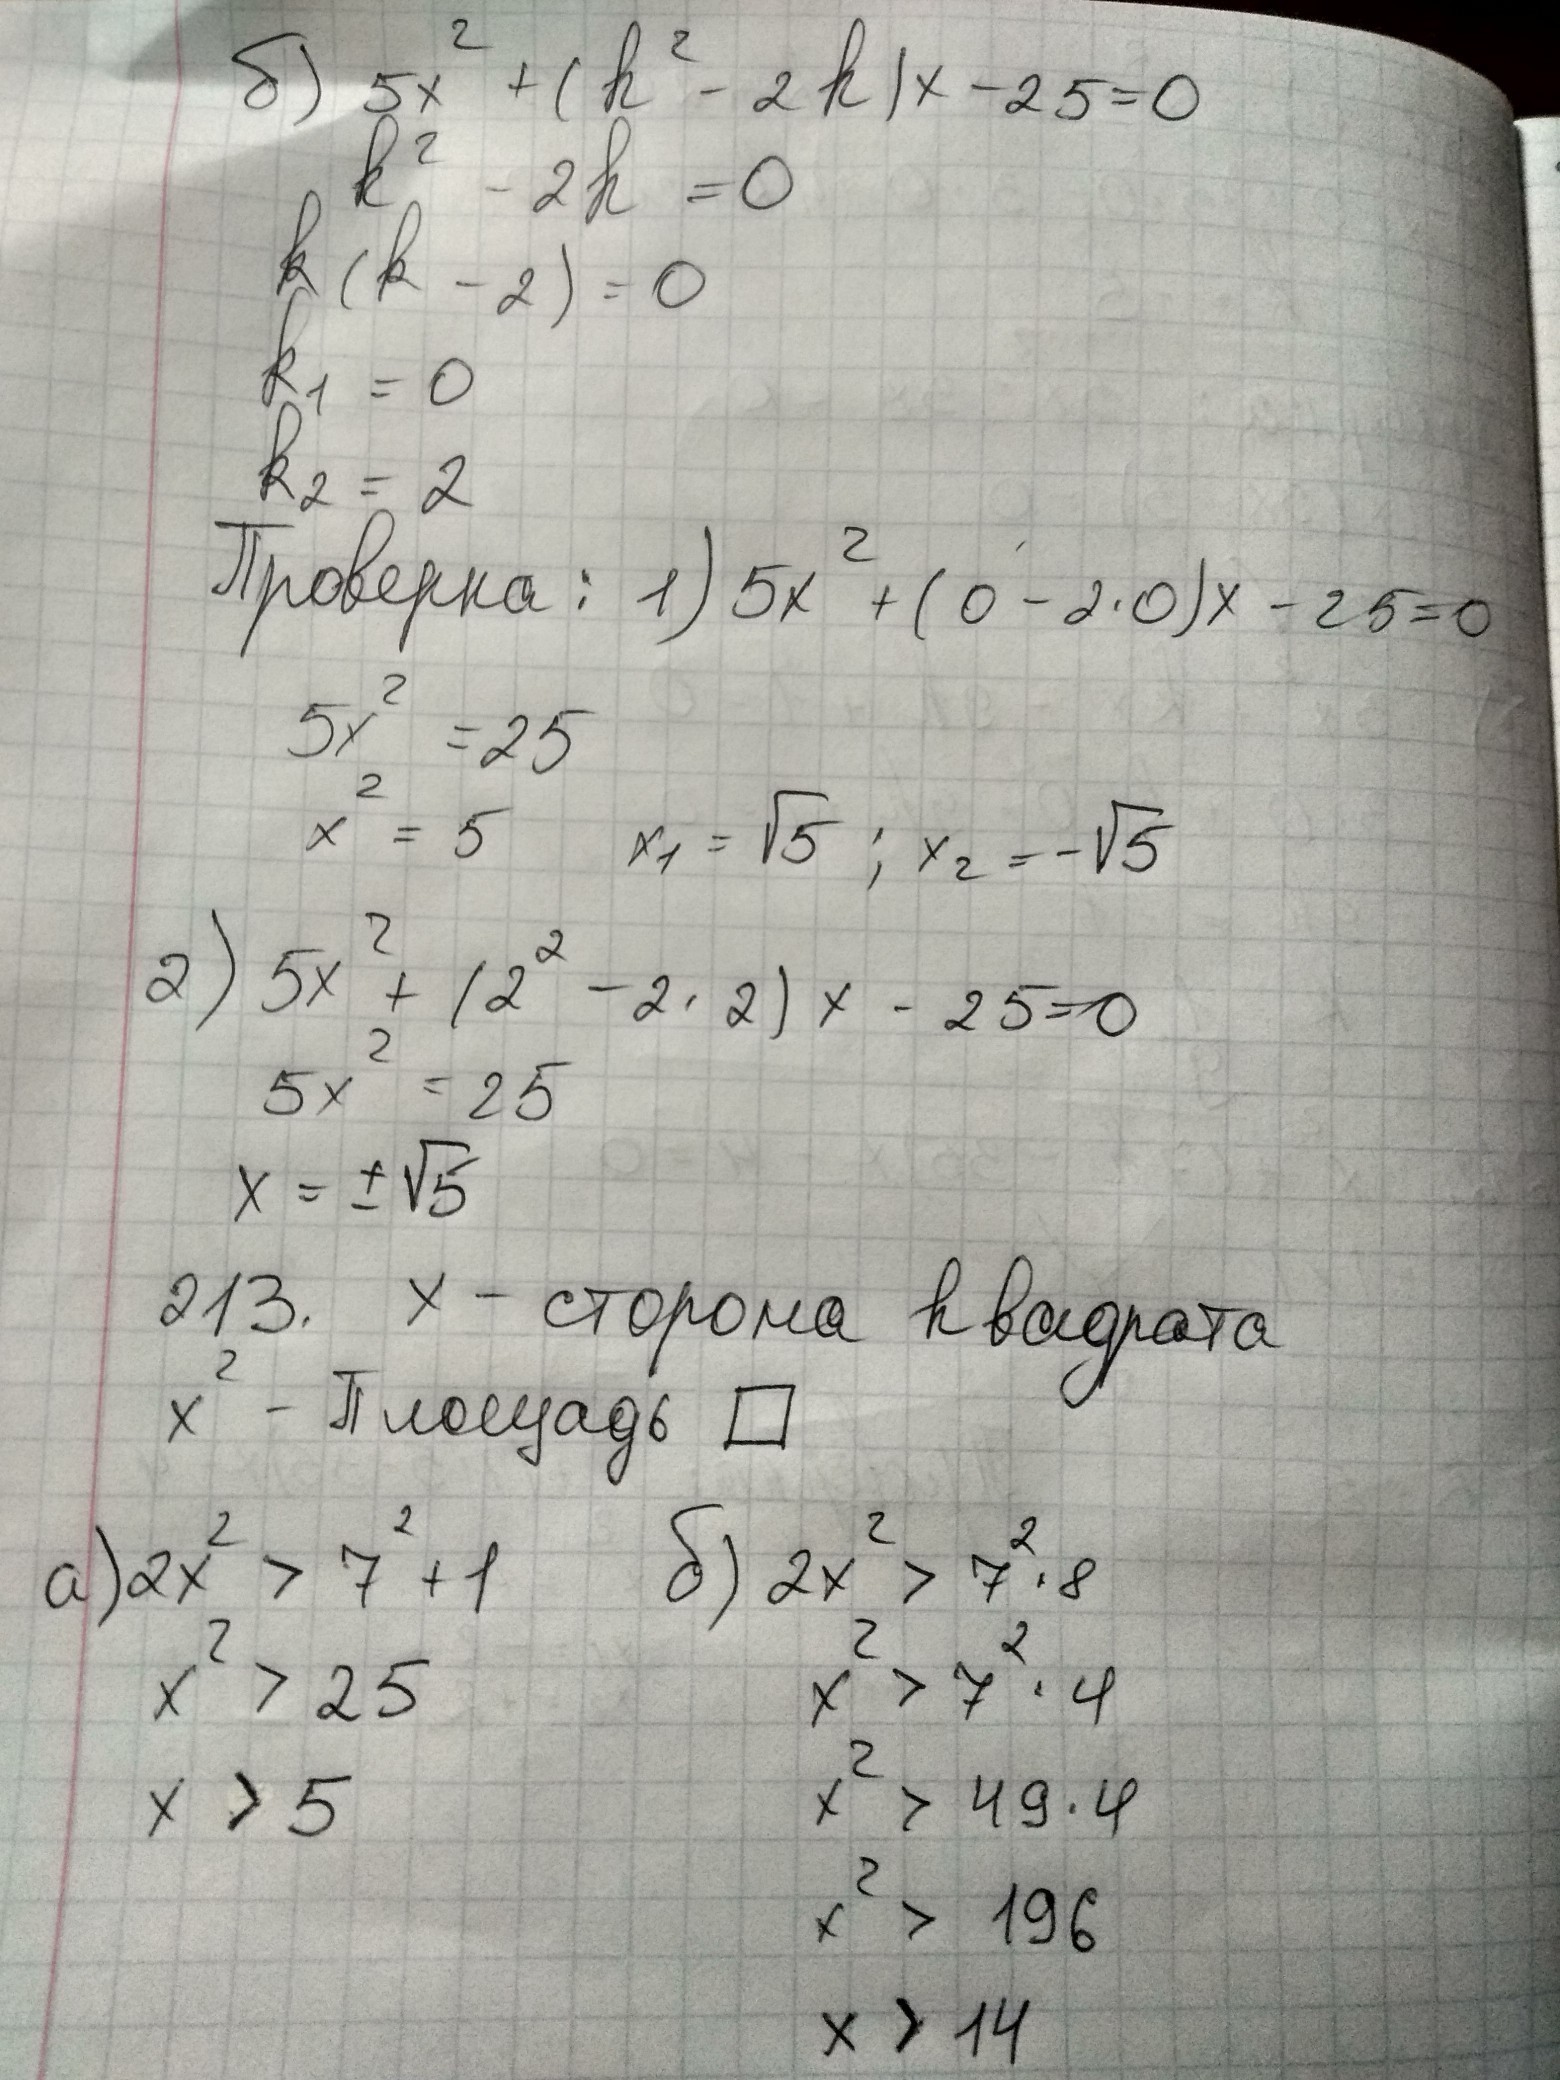 б) 5x² + (k² - 2k)x - 25 = 0
k² - 2k = 0
k(k - 2) = 0
k₁ = 0
k₂ = 2
Проверка: 1) 5x² + (0 - 2·0)x - 25 = 0
5x² = 25
x² = 5 x₁ = √5 ; x₂ = -√5
2) 5x² + (2² - 2·2)x - 25 = 0
5x² = 25
x = ±√5
213. x - сторона квадрата
x² - Площадь □
а) 2x² > 7² + 1
x² > 25
x > 5
б) 2x² > 7²·8
x² > 7²·4
x² > 49·4
x² > 196
x > 14